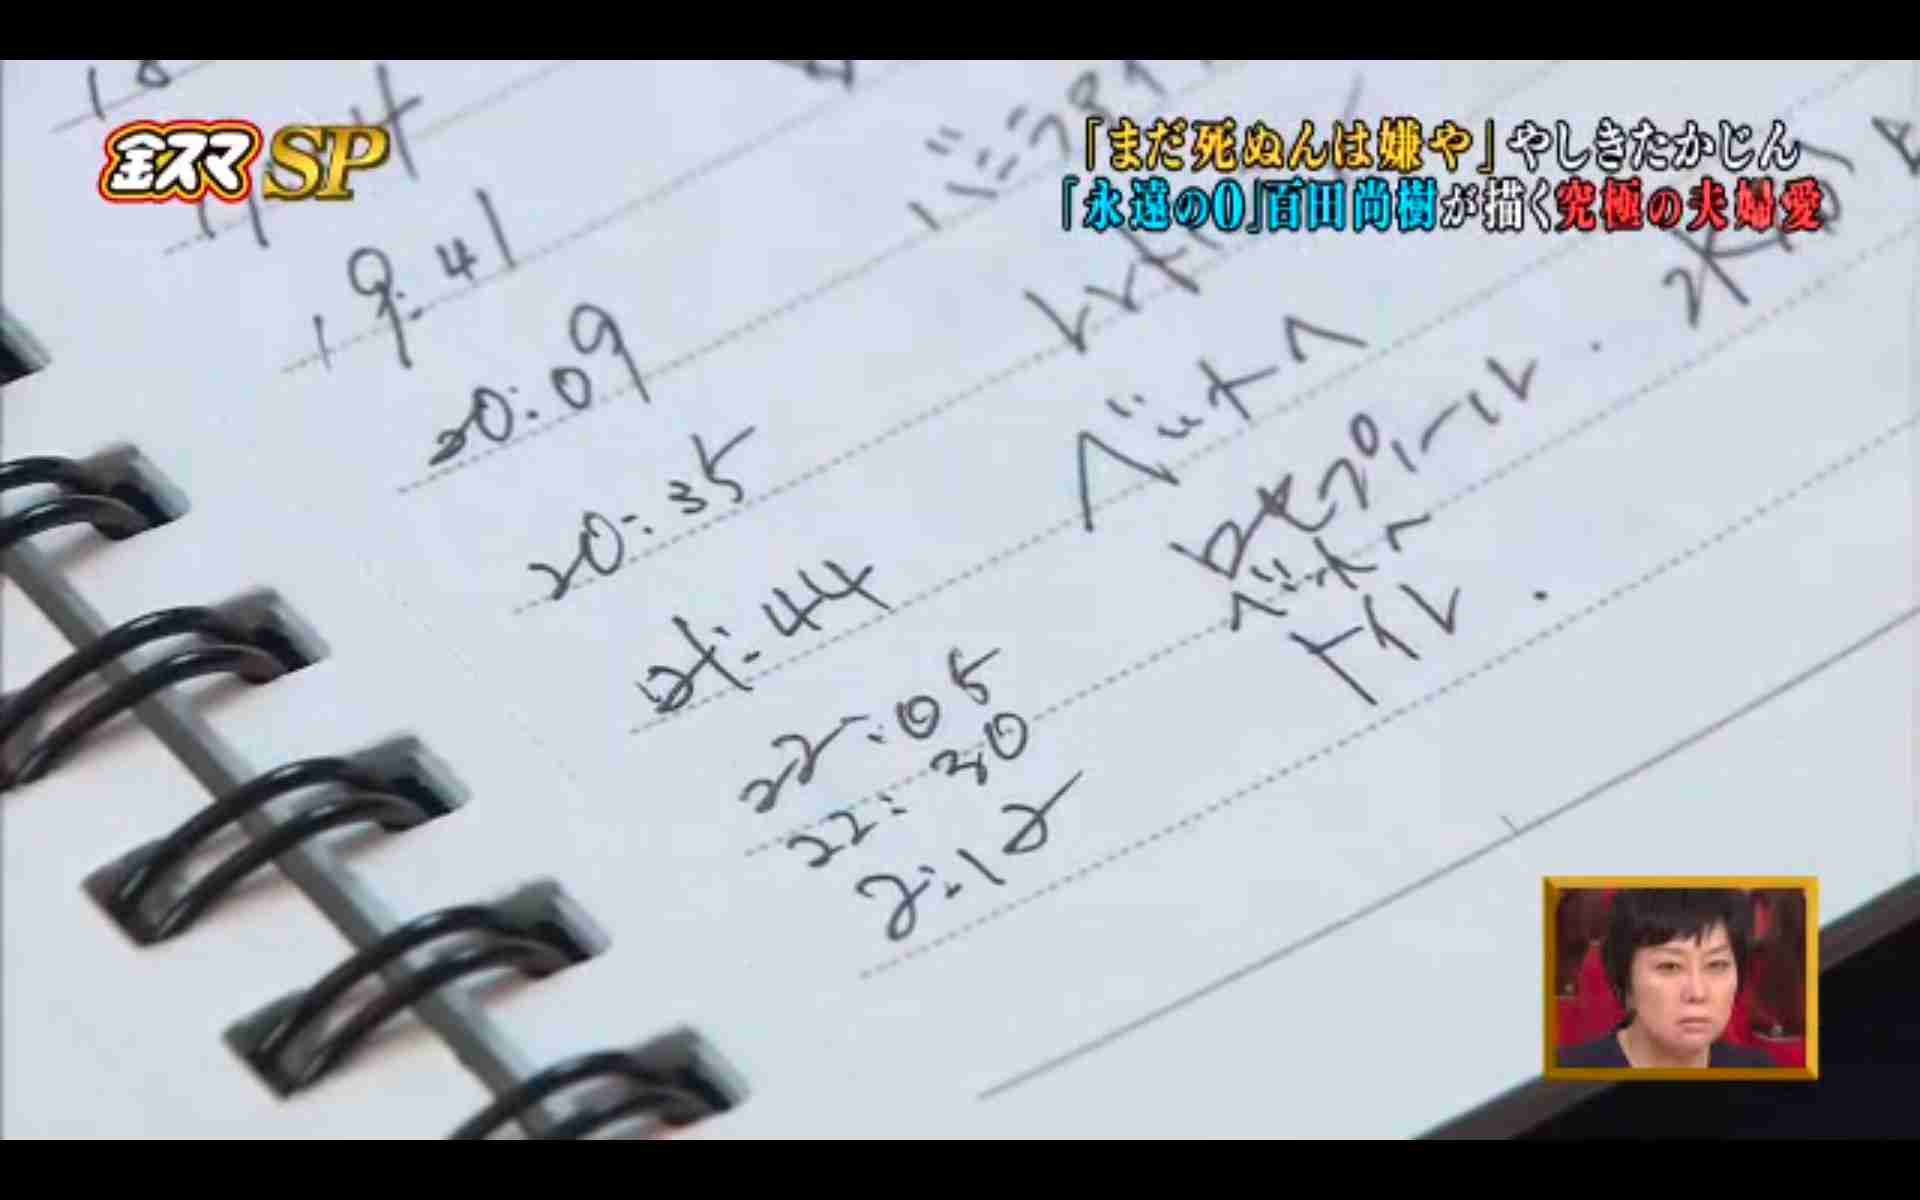 金スマSP
「まだ死ぬんは嫌や」やしきたかじん
「永遠の0」百田尚樹が描く究極の夫婦愛
18
19:41
20:09 バニラ
20:35
21:44 ベットへ
22:05 ロセプール.
22:30 ベットへ
2:12 トイレ.